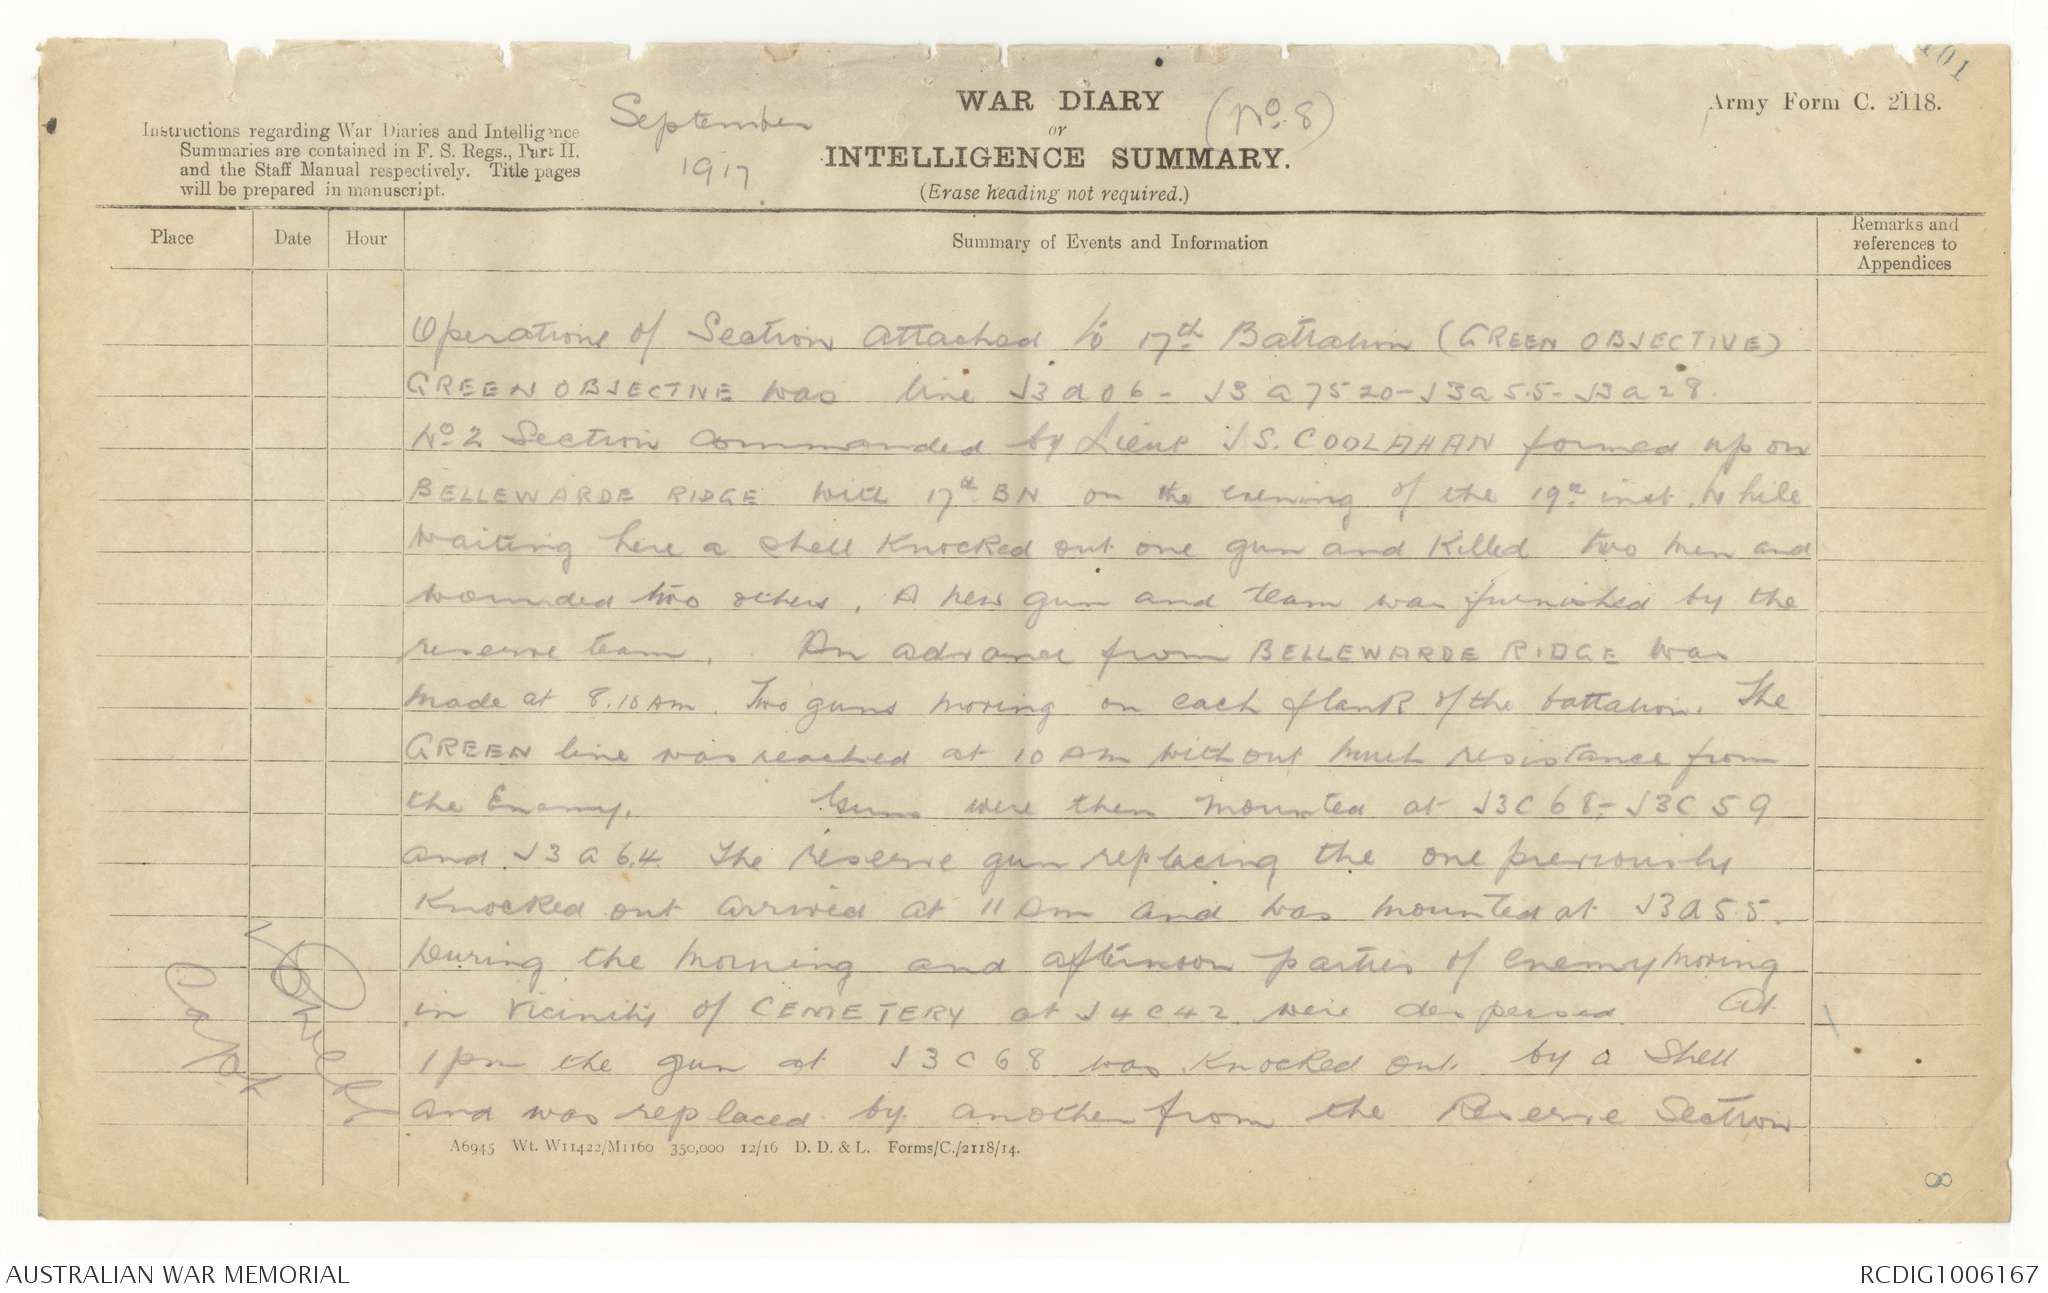 101
September
1917
WAR DIARY
or
INTELLIGENCE SUMMARY.
(Erase heading not required.)
(No. 8)
Army Form C. 2118.
Instructions regarding War Diaries and Intelligence
Summaries are contained in F. S. Regs., Part II.
and the Staff Manual respectively. Title pages
will be prepared in manuscript.
Place Date Hour Summary of Events and Information Remarks and references to Appendices
Operations of Section attached to 17th Battalion (GREEN OBJECTIVE)
GREEN OBJECTIVE was line J3d06 - J3a7520 - J3a5.5 - J3a28.
No 2 Section commanded by Lieut J S. COOLAHAN formed up on
BELLEWARDE RIDGE with 17th BN on the evening of the 19th inst. While
waiting here a shell knocked out one gun and killed two men and
wounded two others. A new gun and team was furnished by the
reserve team. An advance from BELLEWARDE RIDGE was
made at 8.10 AM. Two guns moving on each flank of the battalion. The
GREEN line was reached at 10 AM without much resistance from
the Enemy. Guns were then mounted at J3C68 - J3C59
and J3a6.4. The reserve gun replacing the one previously
knocked out arrived at 11 AM and was mounted at J3a55.
During the morning and afternoon parties of enemy moving
in vicinity of CEMETERY at J4C42 were dispersed. At
1 pm the gun at J3C68 was knocked out by a shell
and was replaced by another from the Reserve Section
A6945 Wt. W11422/M1160 350,000 12/16 D. D. & L. Forms/C./2118/14.
8
AUSTRALIAN WAR MEMORIAL
RCDIG1006167